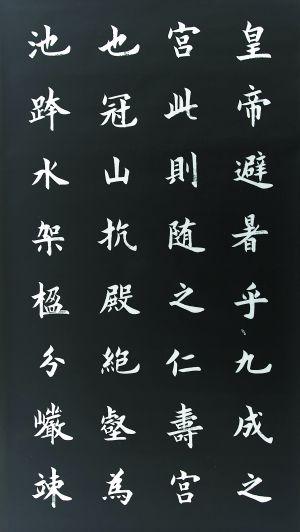 皇帝避暑乎九成之
宮此則随之仁壽宮
也冠山抗殿絕壑為
池跨水架楹分巖竦